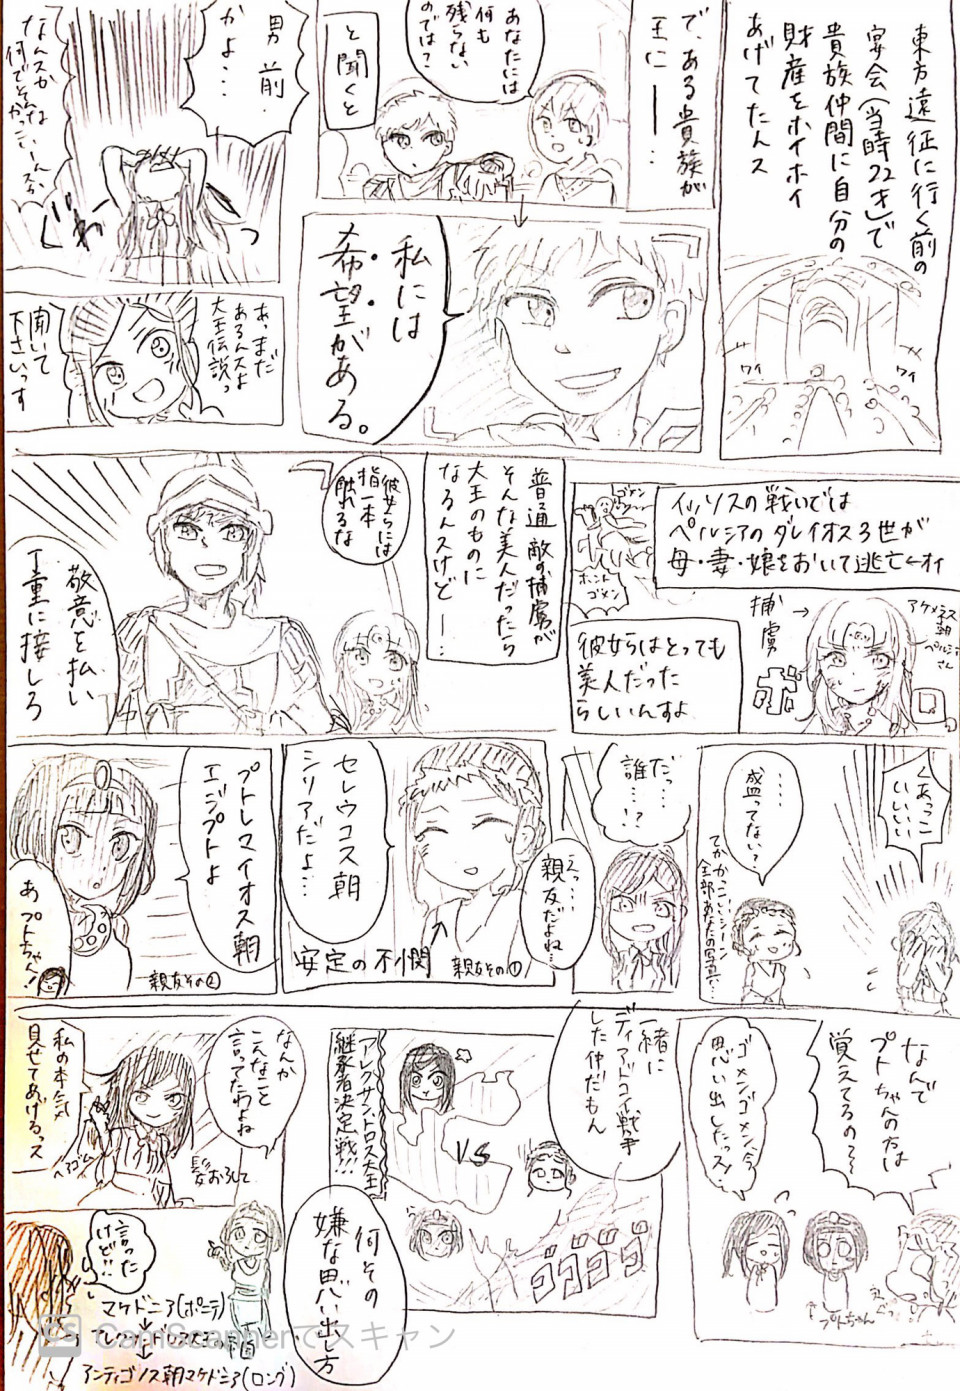 東方遠征に行く前の
宴会(当時22才)で
貴族仲間に自分の
財産をホイホイ
あげてたんス
ワイ
ワイ
で、ある貴族が
王に――…
あなたには
何も
残らない
のでは?
と聞くと
私には
希望がある。
男前
かよ…
なんスか
何でそんな
かっこいーんスか
じわぁっ
あっまだ
あるんスよ
大王伝説っ
聞いて
下さいっす
イッソスの戦いでは
ペルシアのダレイオス3世が
母・妻・娘をおいて逃亡←オイ
ゴメン
ホント
ゴメン
アケメネス
朝
ペルシア
さん
捕虜→
ボロ
彼女らはとっても
美人だった
らしいんすよ
普通敵の捕虜が
そんな美人だったら
大王のものに
なるんスけど――
彼女らには
指一本
触れるな
敬意を払い
丁重に接しろ
くあっこ
いいいい
…
盛ってない?
てかかっこいいシーン
全部あなたの写真で…
だっ…
誰…!?
えっ…
親友だよね…
セレウコス朝
シリアだよ…
安定の不憫
親友その①
プトレマイオス朝
エジプトよ
親友その②
あプトちゃん!
なんで
プトちゃんの方は
覚えてるの〜?
ゴメンゴメン今
思い出したっス!
プトちゃん
一緒に
ディアドコイ戦争
した仲だもん
アレクサンドロス大王
継承者決定戦!!!
VS
ゴゴゴゴ
何その
嫌な思い出し方
なんか
こんなこと
言ってたわよね
私の本気
見せてあげるっス
ヘアゴム
髪おろして
言った
けど!!
マケドニア(ポニテ)
↓
アレクサンドロス大王帝国
↓
アンティゴノス朝マケドニア(ロング)
CS CamScannerでスキャン